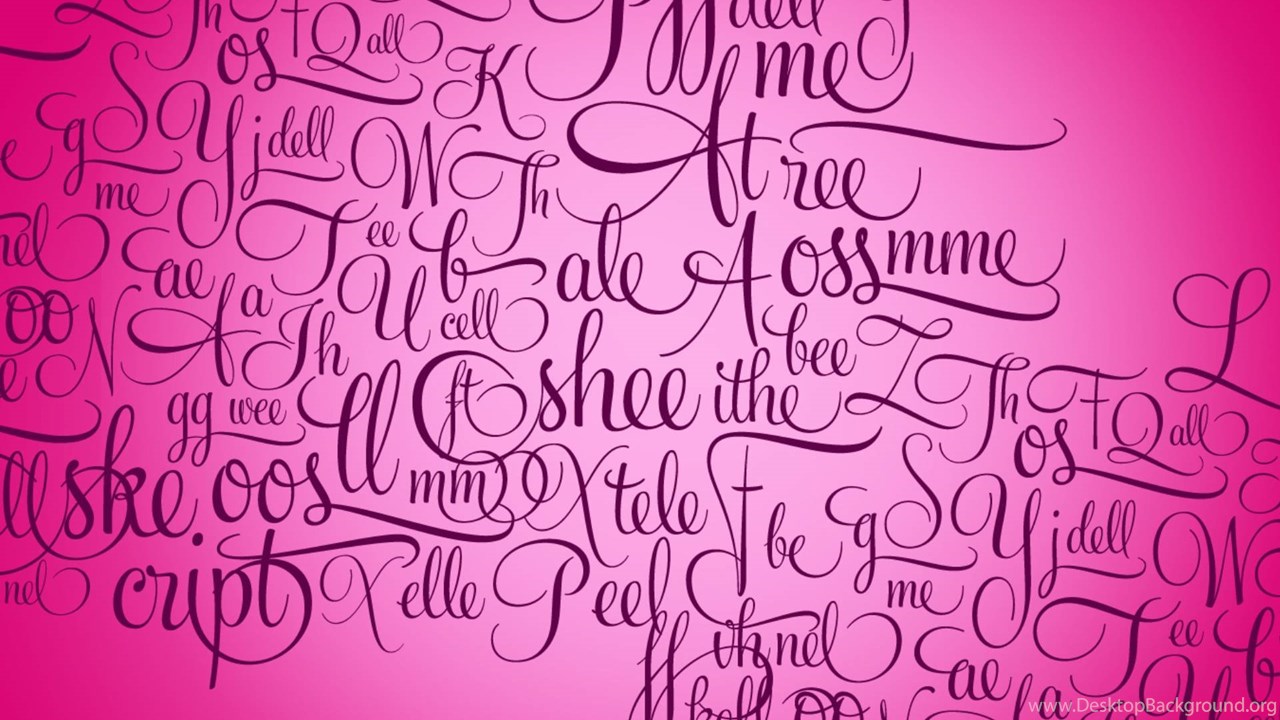 Th os T Q all dell
K me
g S Y j dell W Th At ree
me
nel ae T ee b ale A oss mme
oo N A a Th U cell L
gg wee ll ft shee ithe bee Z Th T Q all
os
ll ske oos ll mm X tele T be g S Y j dell W
nel cript X elle P eel me
nel ae T ee b
a U
oo
www.DesktopBackground.org